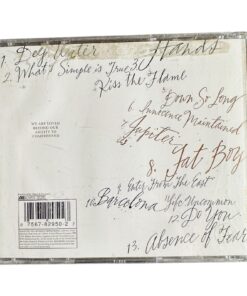 1. Deep Water
Hands
2. What's Simple is True 3.
Kiss the Flame
Down So Long
6. Innocence Maintained
7. Jupiter
8. Fat Boy
9. Enter From The East
10. Barcelona
11. Life Uncommon
12. Do You
13. Absence of Fear
WE ARE LOVED
BEFORE OUR
ABILITY TO
COMPREHEND
7567-82950-2